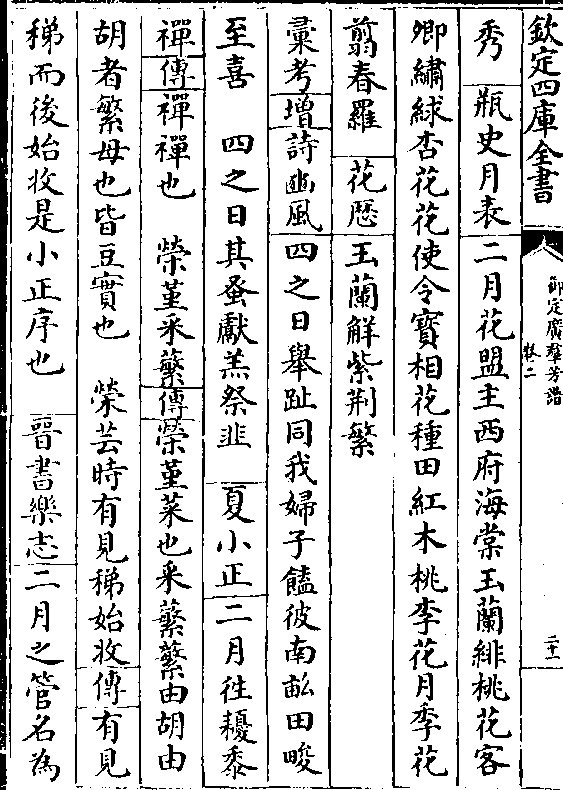 欽定四庫全書
御定廣羣芳譜
卷二
二十一
秀 瓶史月表二月花盟主西府海棠玉蘭緋桃花客
卿繡毬杏花花使令寶相花種田紅木桃李花月季花
翦春羅 花歷玉蘭解紫荆繁
彚考增詩豳風四之日舉趾同我婦子饁彼南畝田畯
至喜 四之日其蚤獻羔祭韭 夏小正二月往耰黍
禪傳禪禪也 榮菫采蘩傳榮菫菜也采蘩蘩由胡由
胡者繁母也皆豆實也 榮芸時有見稊始收傳有見
稊而後始收是小正序也 晉書樂志二月之管名為